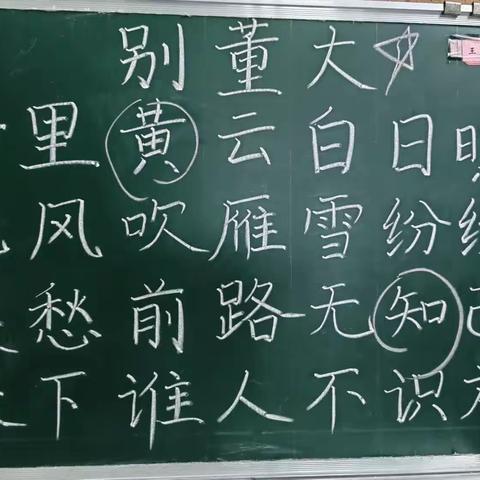 别董大
里黄云白日
风吹雁雪纷
愁前路无知
下谁人不识
王